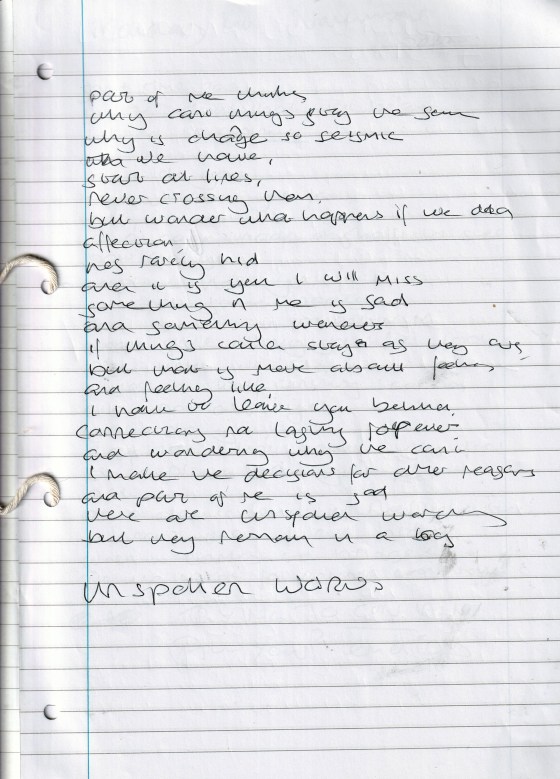 part of me thinks
why can't things stay the same
why is change so seismic
we have,
start at lines,
never crossing them.
but wonder what happens if we did
affection,
rarely hid
and it is you I will miss
something in me is sad
and something wonders
if things could stay as they are
but that is more about feeling
and feeling like
I have to leave you behind.
connections not lasting forever.
and wondering why we can't
make the decisions for other reasons
and part of me is sad
there are unspoken words
but they remain in a
Unspoken Words